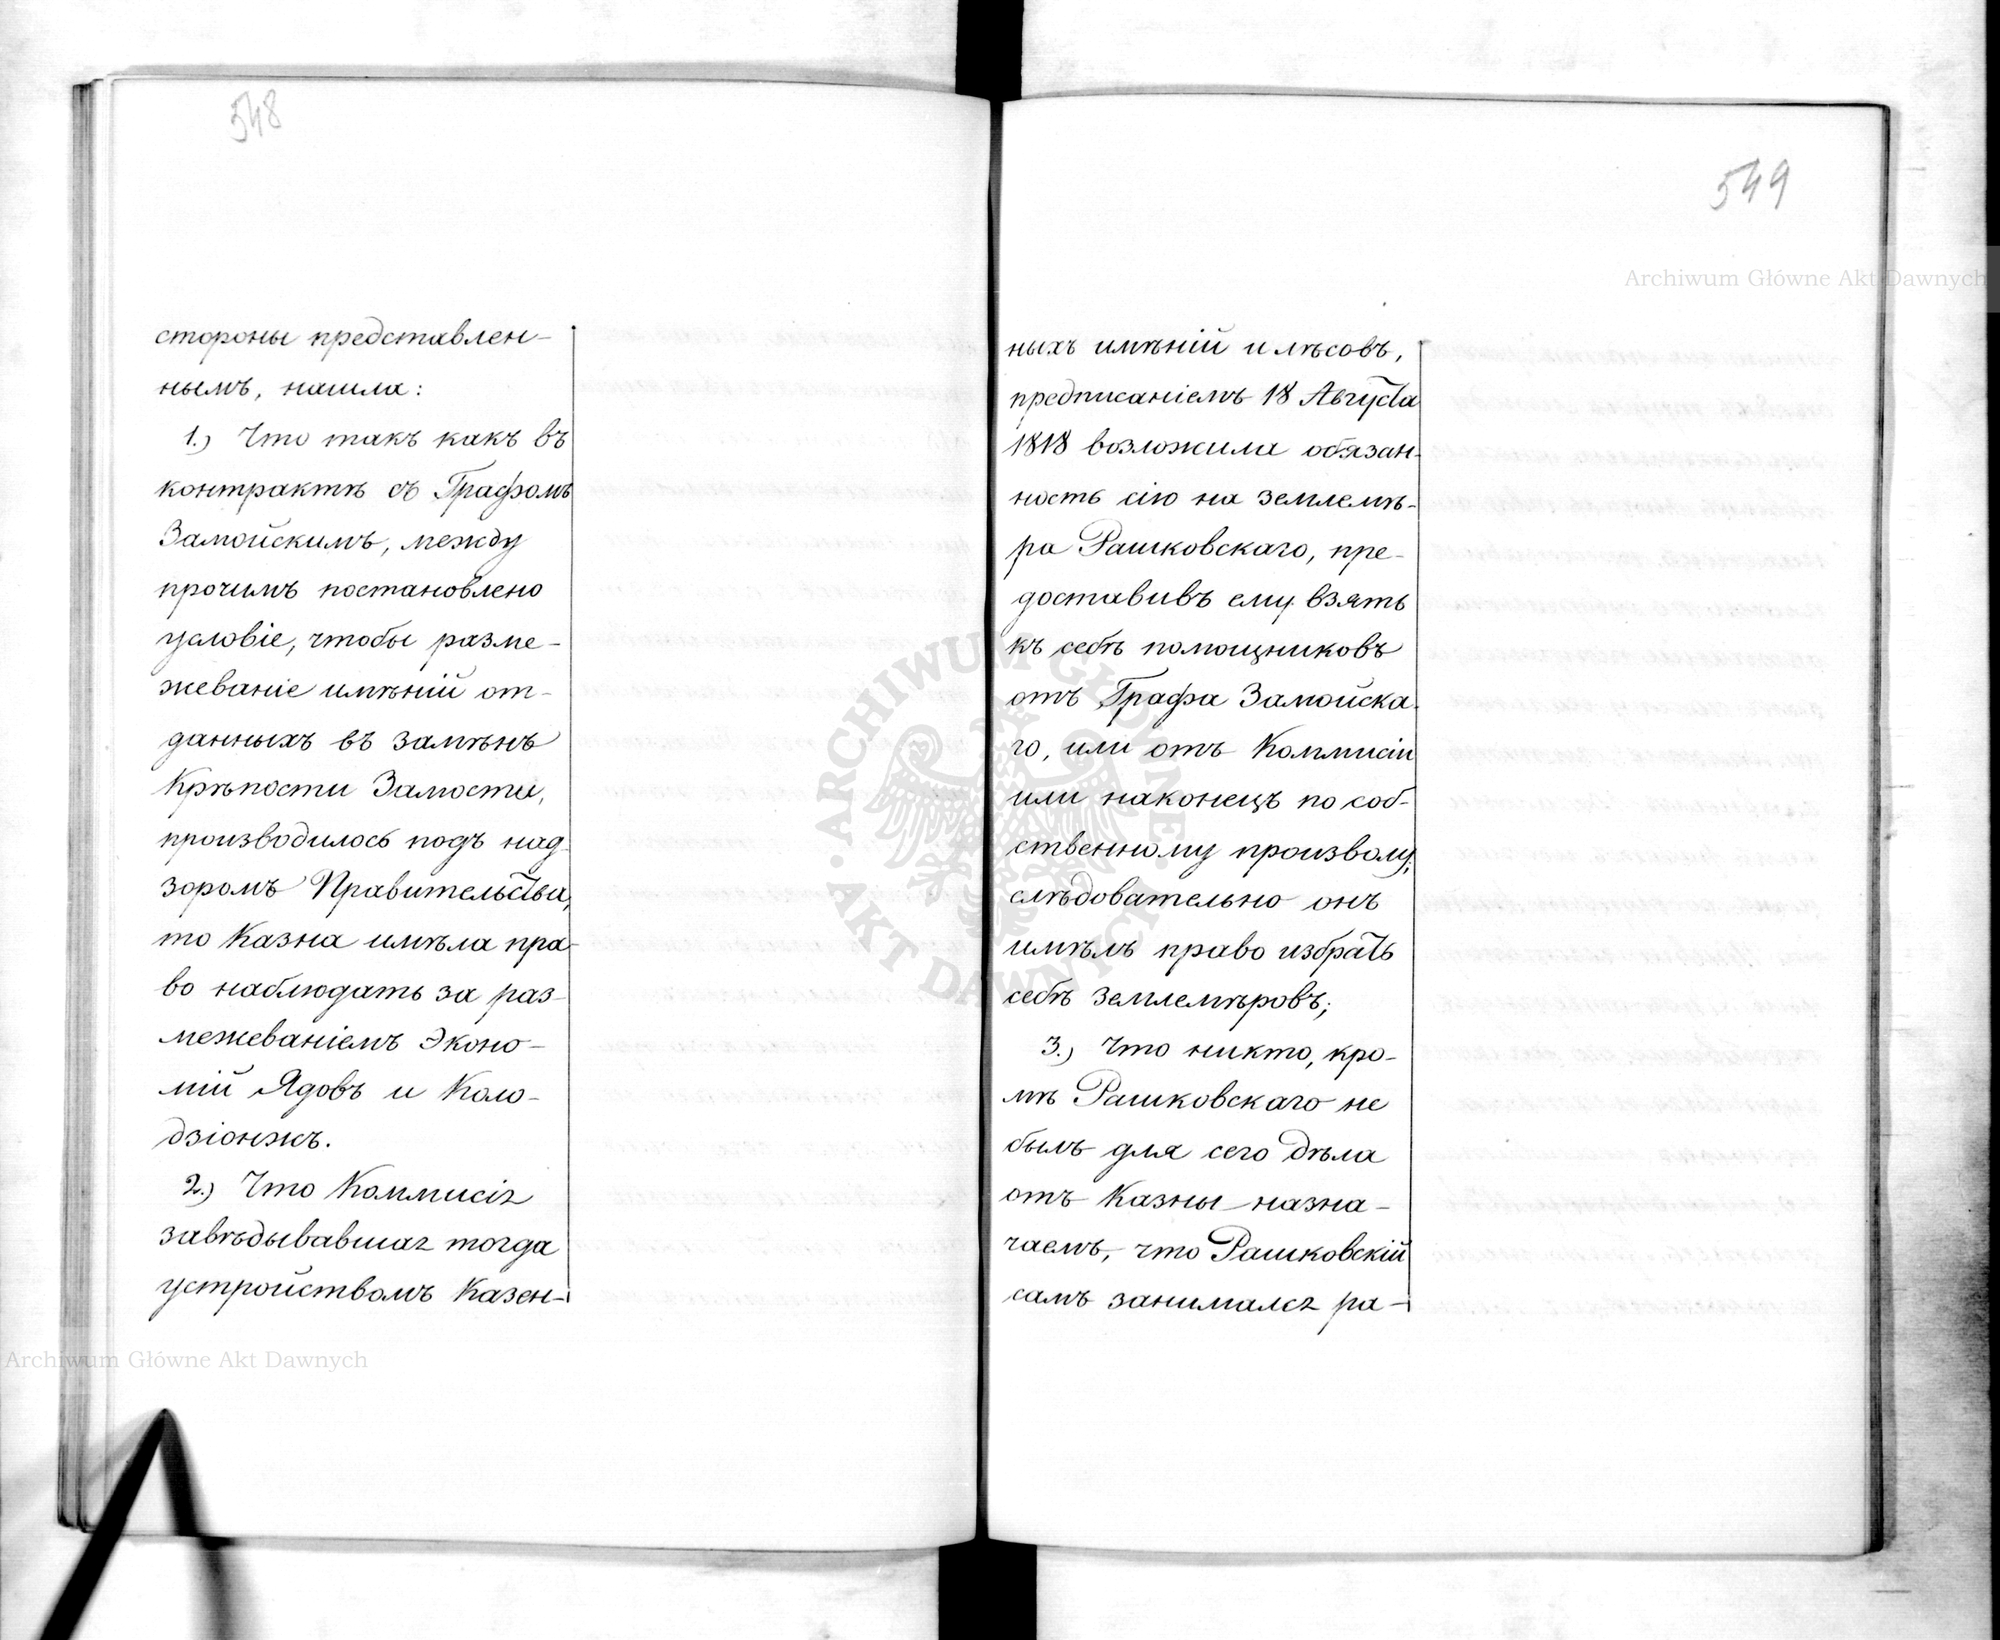 548
стороны представлен-
нымъ, нашла:
1.) Что такъ какъ въ
контрактѣ съ Графомъ
Замойскимъ, между
прочимъ постановлено
условіе, чтобы разме-
жеваніе имѣній от-
данныхъ въ замѣнъ
Крѣпости Замостья,
производилось подъ над-
зоромъ Правительства,
то Казна имѣла пра-
во наблюдать за раз-
межеваніемъ Эконо-
мій Ядовъ и Коло-
дзіонжъ.
2.) Что Коммисія
завѣдывавшая тогда
устройствомъ Казен-
549
ныхъ имѣній и лѣсовъ,
предписаніемъ 18 Августа
1818 возложила обязан-
ность сію на землемѣ-
ра Рашковскаго, пре-
доставивъ ему взять
къ себѣ помощниковъ
отъ Графа Замойска-
го, или отъ Коммисіи
или наконецъ по соб-
ственному произволу;
слѣдовательно онъ
имѣлъ право избрать
себѣ землемѣровъ;
3.) Что никто, кро-
мѣ Рашковскаго не
былъ для сего дѣла
отъ Казны назна-
чаемъ, что Рашковскій
самъ занимался ра-
Archiwum Główne Akt Dawnych
Archiwum Główne Akt Dawnych
ARCHIWUM GŁÓWNE AKT DAWNYCH